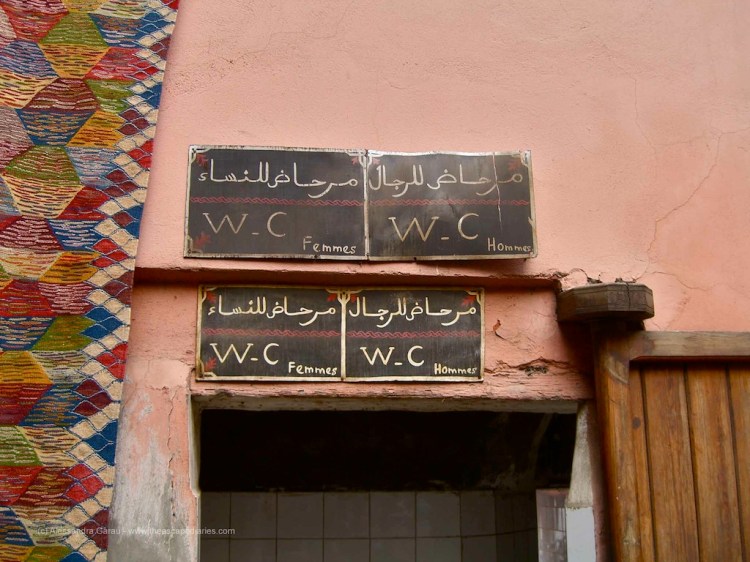 مرحاض للنساء
W-C
Femmes
مرحاض للرجال
W-C
Hommes
مرحاض للنساء
W-C
Femmes
مرحاض للرجال
W-C
Hommes
(c) Alessandra Garau